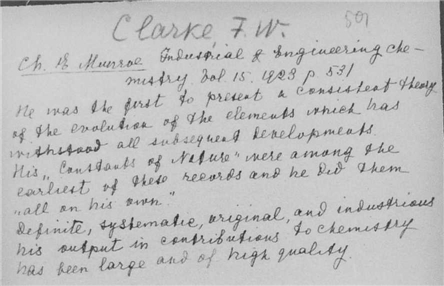 Clarke F.W.
501
Ch. E Munroe Industrial & Engineering Che-
mistry Vol. 15. 1923 p 531
He was the first to present a consistent theory
of the evolution of the elements which has
withstood all subsequent developments.
His „Constants of Nature" were among the
earliest of these records and he did them
„all on his own."
Definite, systematic, original, and industrious
his output in contributions to chemistry
has been large and of high quality.